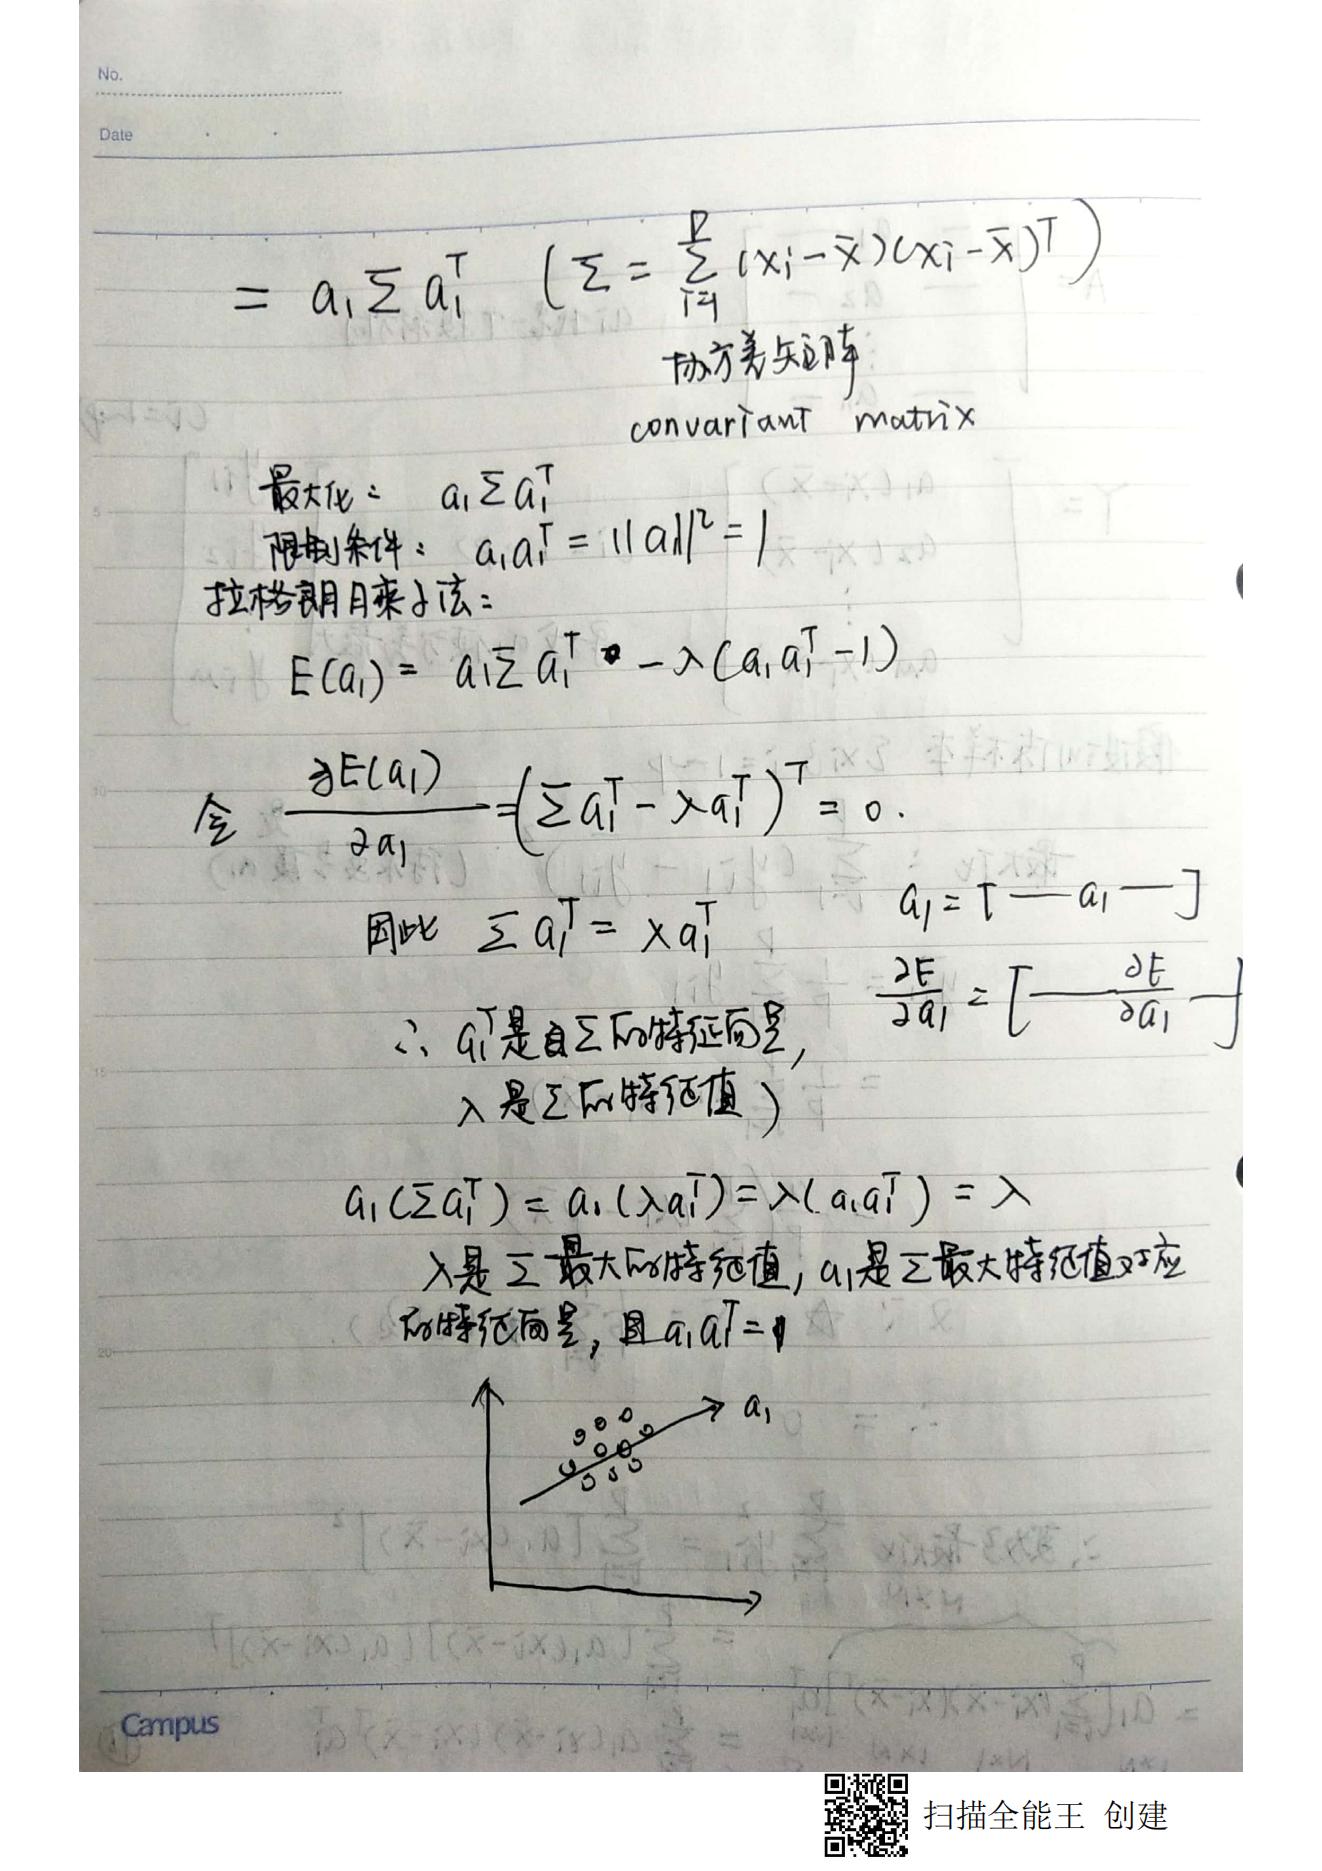 No.
Date
= a₁Σa₁ᵀ (Σ = Σᵢ₌₁ᴾ (xᵢ-x̄)(xᵢ-x̄)ᵀ)
协方差矩阵
convariant matrix
最大化: a₁Σa₁ᵀ
限制条件: a₁a₁ᵀ = ||a₁||² = 1
拉格朗日乘子法:
E(a₁) = a₁Σa₁ᵀ - λ(a₁a₁ᵀ-1)
令 ∂E(a₁)/∂a₁ = (Σa₁ᵀ - λa₁ᵀ)ᵀ = 0.
因此 Σa₁ᵀ = λa₁ᵀ
a₁ = [ — a₁ — ]
∂E/∂a₁ = [ — ∂E/∂a₁ — ]
∴ a₁ᵀ是Σ的特征向量,
λ是Σ的特征值)
a₁(Σa₁ᵀ) = a₁(λa₁ᵀ) = λ(a₁a₁ᵀ) = λ
λ是Σ最大的特征值, a₁是Σ最大特征值对应
的特征向量, 且a₁a₁ᵀ=1
a₁
Campus
扫描全能王 创建